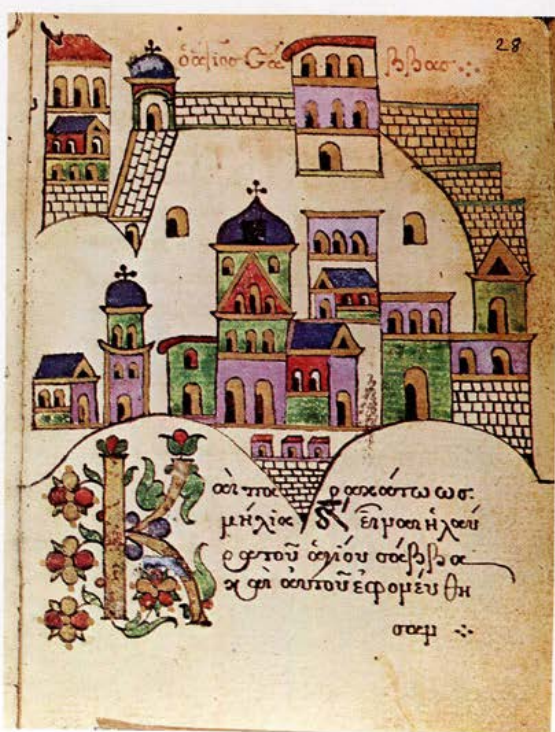 28
ὁ ἅγιος Σάββας
Καὶ παρακάτω ὡς
μήλια δ εἶναι ἡ λαύ
ρα τοῦ ἁγίου σάββα
καὶ αὐτοῦ ἐφονεύθη
σαν